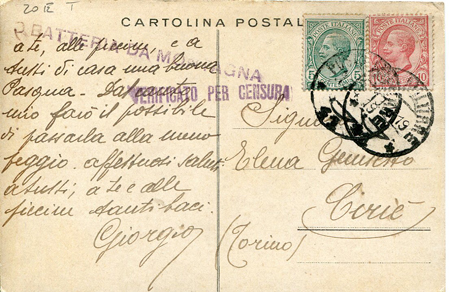 20 IE T
CARTOLINA POSTAL
BATTERIA DA MONTAGNA
VERIFICATO PER CENSURA
POSTE ITALIANE
5
POSTE ITALIANE
10
a te, alle piccine e a
tutti di casa una buona
Pasqua.
mio farò il possibile
di passarla alla meno
peggio. affettuosi saluti
a tutti, a te e alle
piccine tanti baci.
Giorgio
Elena
Ciriè
(Torino)